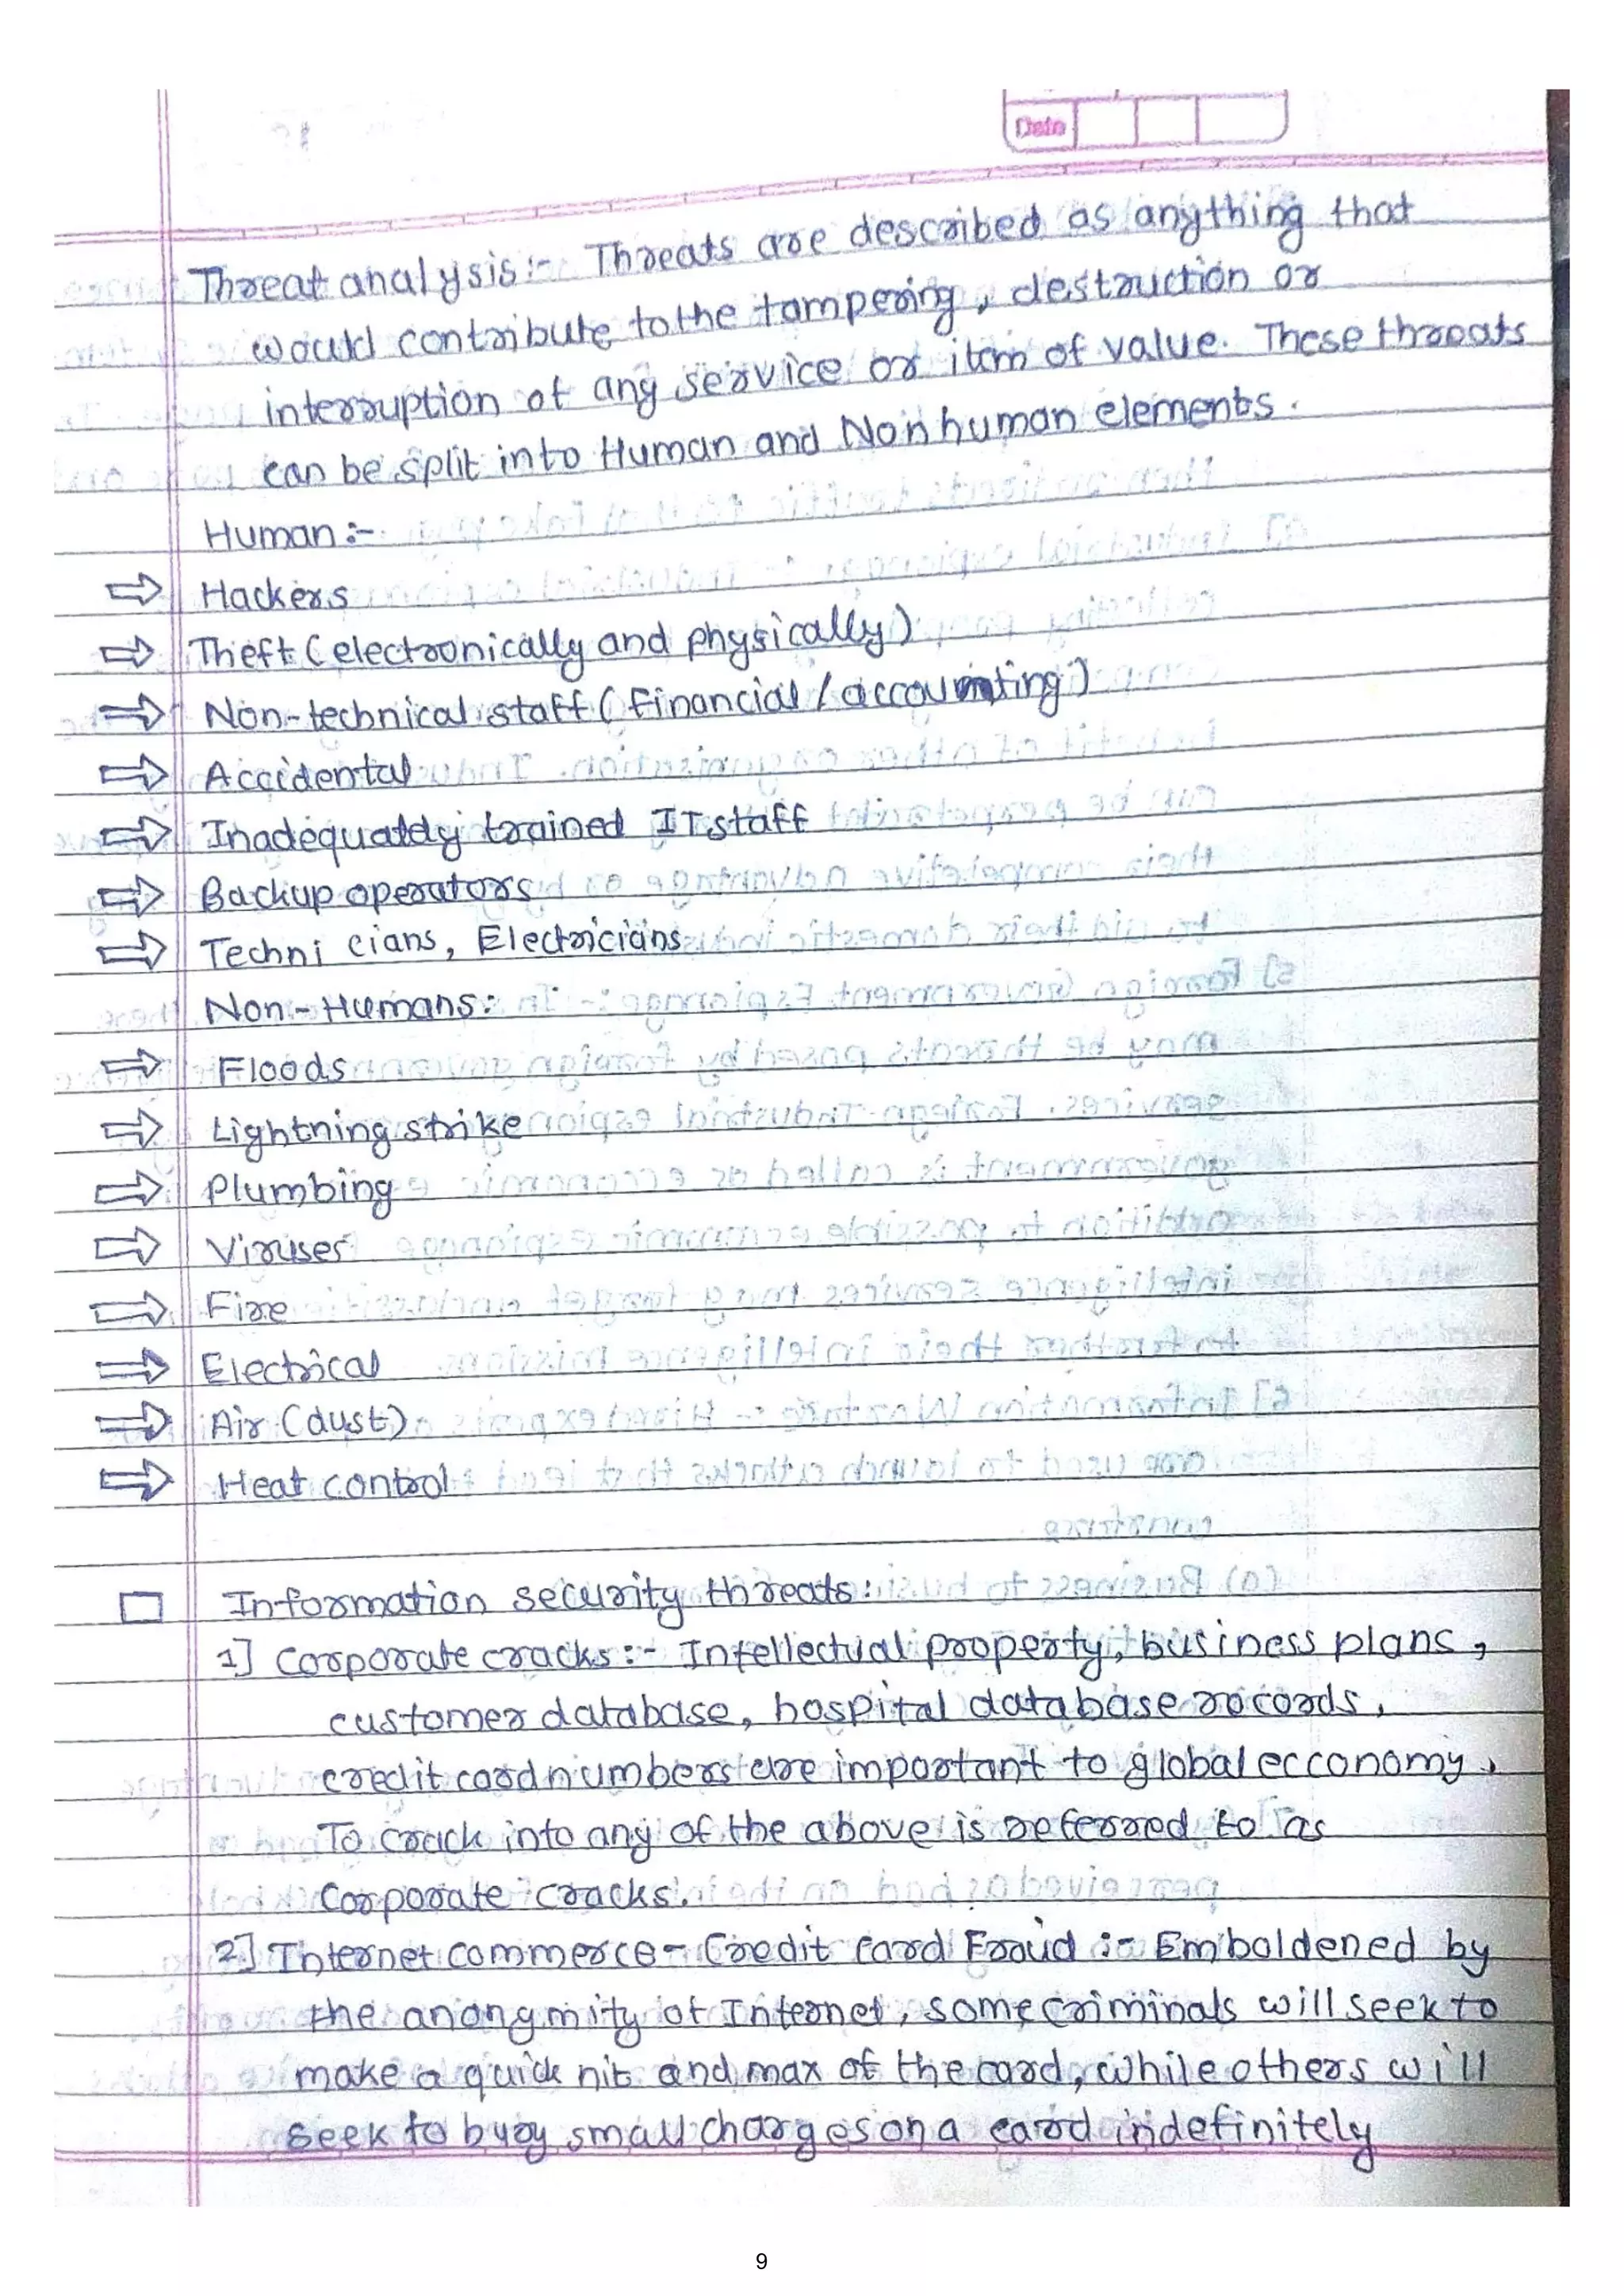 Date
Threat analysis :- Threats are described as anything that
would contribute to the tampering, destruction or
interruption of any service or item of value. These threats
can be split into Human and Non human elements.
Human :-
⇨ Hackers
⇨ Theft (electronically and physically)
⇨ Non-technical staff (financial / accounting)
⇨ Accidental
⇨ Inadequately trained IT staff
⇨ Backup operators
⇨ Technicians, Electricians
Non-Humans:
⇨ Floods
⇨ Lightning strike
⇨ Plumbing
⇨ Viruses
⇨ Fire
⇨ Electrical
⇨ Air (dust)
⇨ Heat control
□ Information security threats:
1] Corporate cracks :- Intellectual property, business plans,
customer database, hospital database records,
credit card numbers are important to global ecconomy,
To crack into any of the above is referred to as
Corporate cracks.
2] Internet commerce - Credit Card Fraud :- Emboldened by
the anongmity of Internet, some criminals will seek to
make a quick hit and max of the card, while others will
seek to bury small charges on a card indefinitely
9